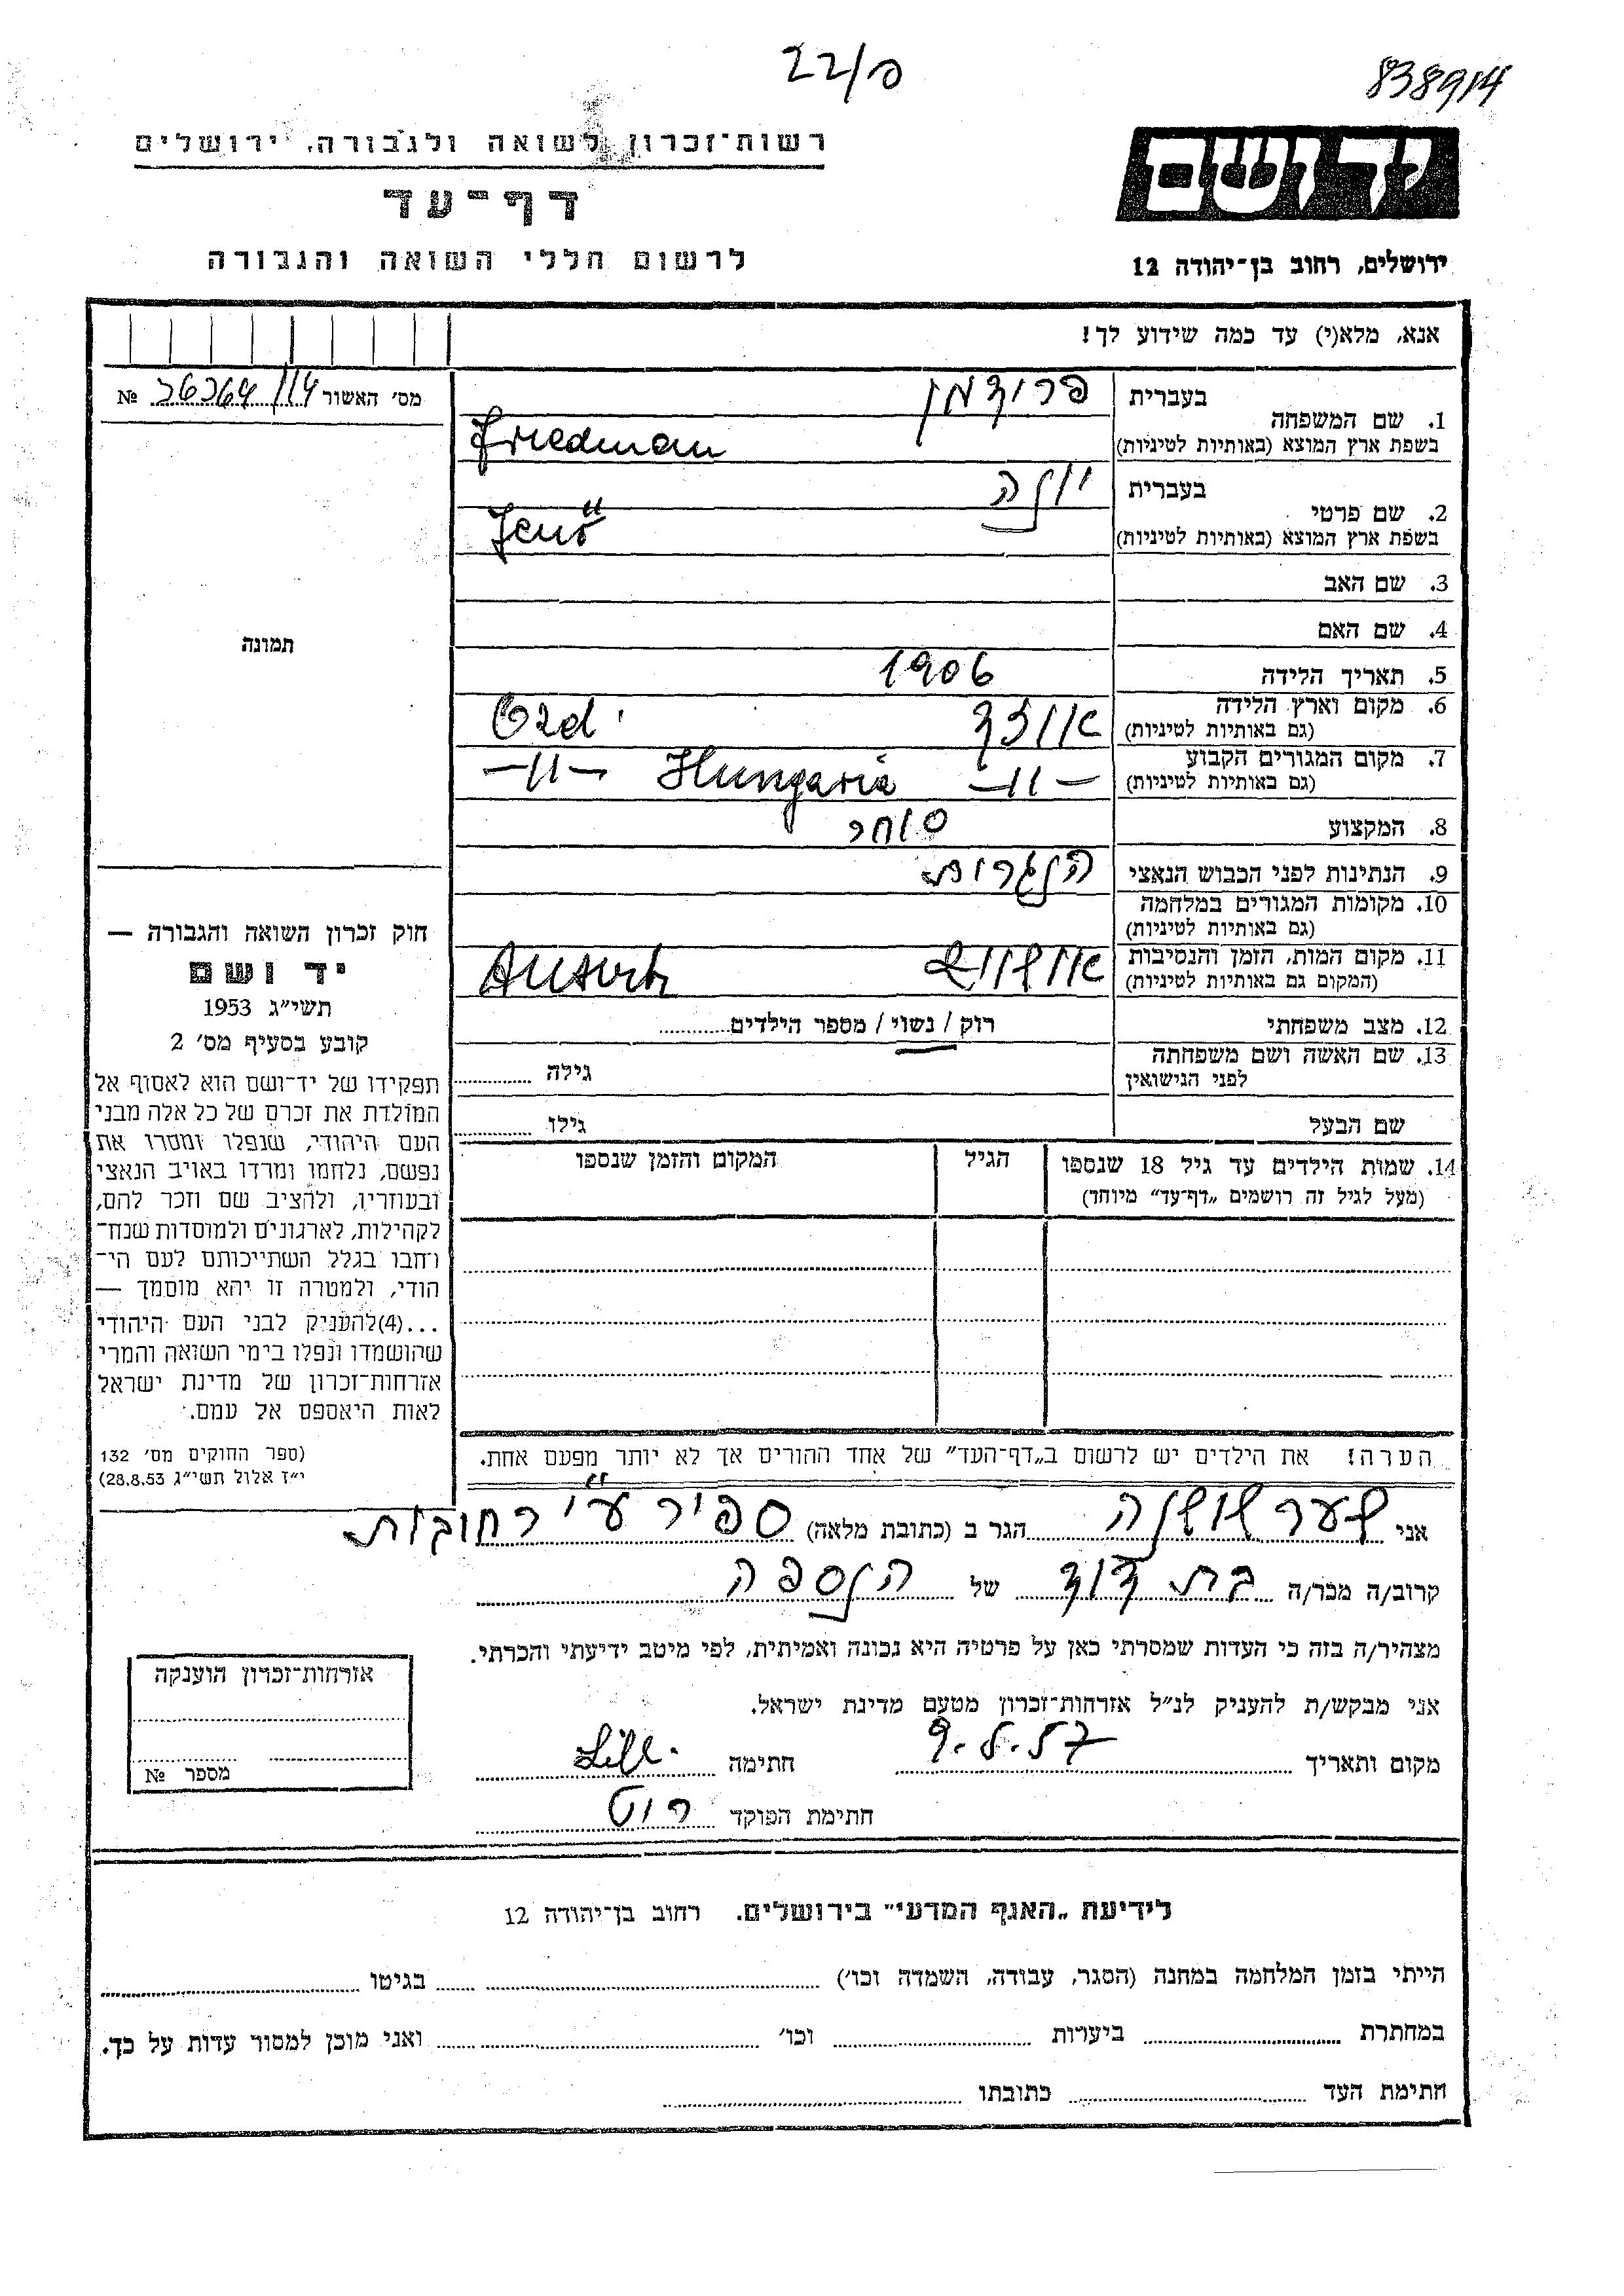 פ/22
838914
יד ושם
ירושלים, רחוב בן־יהודה 12
רשות־זכרון לשואה ולגבורה, ירושלים
דף־עד
לרשום חללי השואה והגבורה
אנא, מלא(י) עד כמה שידוע לך!
מס׳ האשור №
1. שם המשפחה
בעברית פרידמן
בשפת ארץ המוצא (באותיות לטיניות) Friedman
2. שם פרטי
בעברית יונה
בשפת ארץ המוצא (באותיות לטיניות) Jenő
3. שם האב
4. שם האם
5. תאריך הלידה 1906
6. מקום וארץ הלידה אוזד Ozd
(גם באותיות לטיניות)
7. מקום המגורים הקבוע —״— Hungaria —״—
(גם באותיות לטיניות)
8. המקצוע סוחר
9. הנתינות לפני הכבוש הנאצי הונגרית
10. מקומות המגורים במלחמה
(גם באותיות לטיניות)
11. מקום המות, הזמן והנסיבות אושוויץ
(המקום גם באותיות לטיניות)
12. מצב משפחתי רוק / נשוי / מספר הילדים
13. שם האשה ושם משפחתה גילה
לפני הנישואין
שם הבעל גילו
14. שמות הילדים עד גיל 18 שנספו הגיל המקום והזמן שנספו
(מעל לגיל זה רושמים „דף־עד״ מיוחד)
הערה! את הילדים יש לרשום ב„דף־העד״ של אחד ההורים אך לא יותר מפעם אחת.
תמונה
חוק זכרון השואה והגבורה —
יד ושם
תשי״ג 1953
קובע בסעיף מס׳ 2
תפקידו של יד־ושם הוא לאסוף אל
המולדת את זכרם של כל אלה מבני
העם היהודי, שנפלו ומסרו את
נפשם, נלחמו ומרדו באויב הנאצי
ובעוזריו, ולהציב שם וזכר להם,
לקהילות, לארגונים ולמוסדות שנח־
רחבו בגלל השתייכותם לעם הי־
הודי, ולמטרה זו יהא מוסמך —
...(4)להעניק לבני העם היהודי
שהושמדו ונפלו בימי השואה והמרי
אזרחות־זכרון של מדינת ישראל
לאות היאספם אל עמם.
(ספר החוקים מס׳ 132
י״ז אלול תשי״ג 28.8.53)
אני שער שושנה הגר ב (כתובת מלאה) ספיר רחובות
קרוב/ה מכר/ה בת דוד של הנספה
מצהיר/ה בזה כי העדות שמסרתי כאן על פרטיה היא נכונה ואמיתית, לפי מיטב ידיעתי והכרתי.
אני מבקש/ת להעניק לנ״ל אזרחות־זכרון מטעם מדינת ישראל.
מקום ותאריך 9.5.57 חתימה
חתימת הפוקד רוט
אזרחות־זכרון הוענקה
מספר №
לידיעת „האגף המדעי״ בירושלים. רחוב בן־יהודה 12
הייתי בזמן המלחמה במחנה (הסגר, עבודה, השמדה וכו׳) בגיטו
במחתרת ביערות וכו׳ ואני מוכן למסור עדות על כך.
חתימת העד כתובתו